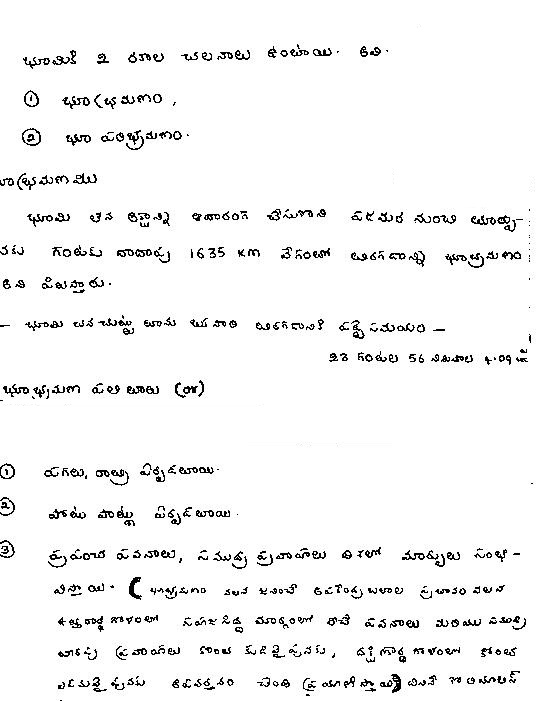 భూమికి 2 రకాల చలనాలు ఉంటాయి. అవి.
① భూభ్రమణం,
② భూ పరిభ్రమణం.
భూభ్రమణము
భూమి తన అక్షాన్ని ఆధారంగా చేసుకొని పడమర నుంచి తూర్పు-
నకు గంటకు దాదాపు 1635 KM వేగంతో తిరగడాన్ని భూభ్రమణం
అని పిలుస్తారు.
- భూమి తన చుట్టు తాను ఒకసారి తిరగడానికి పట్టే సమయం -
23 గంటల 56 నిమిషాల 4.09 సె
భూభ్రమణ ఫలితాలు (or)
① పగలు, రాత్రు ఏర్పడతాయి.
② పోటు పాట్లు ఏర్పడతాయి.
③ ప్రపంచ పవనాలు, సముద్ర ప్రవాహాలు దిశలో మార్పులు సంభ-
విస్తాయి. (భూభ్రమణం వలన జనించే అపకేంద్ర బలాల ప్రభావం వలన
ఉత్తరార్ధ గోళంలో సహజసిద్ధ మార్గంలో వీచే పవనాలు మరియు సముద్ర
ప్రవాహాలు కొంత కుడివైపునకు, దక్షిణార్ధ గోళంలో కొంత
ఎడమవైపునకు అపవర్తనం చెంది ప్రయాణిస్తాయి)